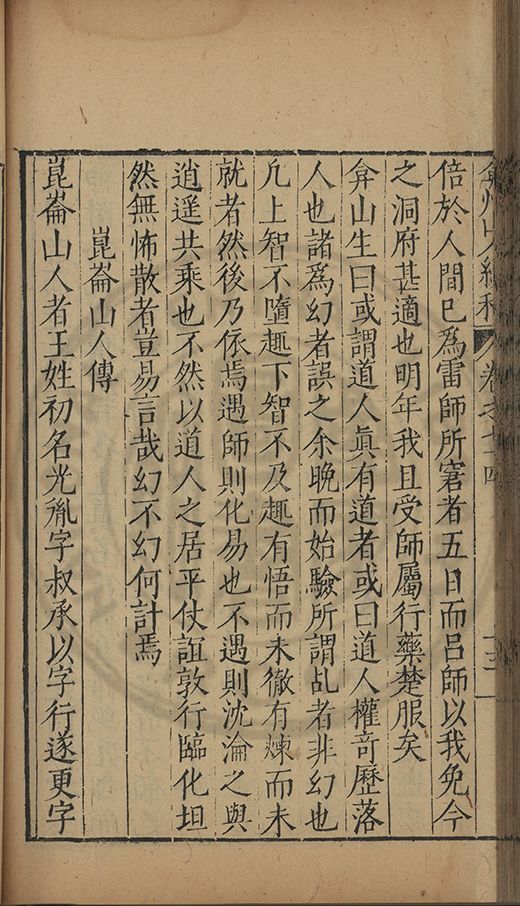 弇州山人續稿 卷之七十四 十三
倍於人間已爲雷師所窘者五日而呂師以我免今
之洞府甚適也明年我且受師屬行藥楚服矣
弇山生曰或謂道人眞有道者或曰道人權竒歷落
人也諸爲幻者誤之余晚而始驗所謂乩者非幻也
凢上智不墮趣下智不及趣有悟而未徹有煉而未
就者然後乃依焉遇師則化易也不遇則沈淪之與
逍遥共乘也不然以道人之居平仗誼敦行臨化坦
然無怖散者豈易言哉幻不幻何計焉
崑崙山人傳
崑崙山人者王姓初名光胤字叔承以字行遂更字